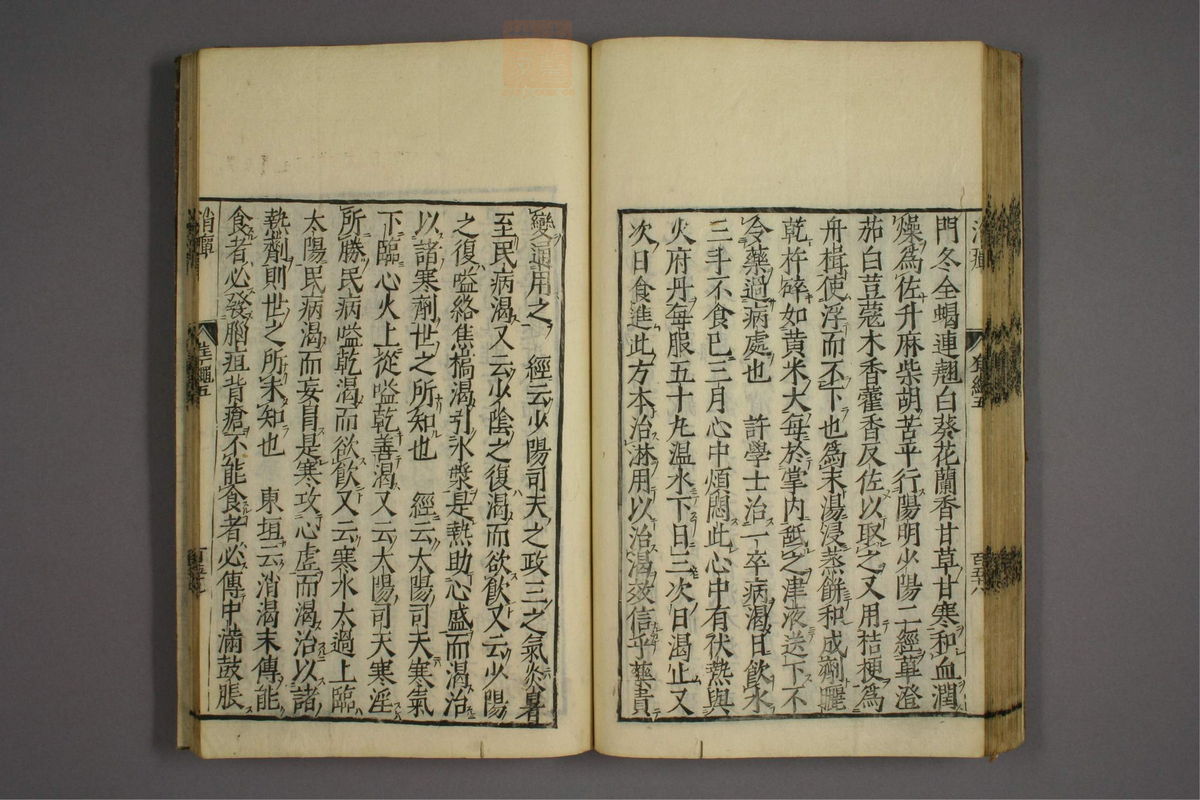 門冬全蝎連翹白葵花蘭香甘草甘寒和血潤
燥為佐升麻柴胡苦平行陽明少陽二經蓽澄
茄白荳蔻木香藿香反佐以取之又用桔梗為
舟楫使浮而不下也為末湯浸蒸餅和成劑曬
乾杵碎如黄米大每於掌内舐之津液送下不
令藥過病處也　許學士治一卒病渴日飲水
三手不食已三月心中煩悶此心中有伏熱與
火府丹每服五十丸温水下日三次日渴止又
次日食進此方本治淋用以治渴效信乎藥貴
變通用之　經云少陽司天之政三之氣炎暑
至民病渴又云少陰之復渴而欲飲又云少陽
之復嗌絡焦槁渴引水漿是熱助心盛而渴治
以諸寒劑世之所知也　經云太陽司天寒氣
下臨心火上從嗌乾善渴又云太陽司天寒淫
所勝民病嗌乾渴而欲飲又云寒水太過上臨
太陽民病渴而妄冒是寒攻心虚而渴治以諸
熱劑則世之所未知也　東垣云消渴末傳能
食者必發腦疽背瘡不能食者必傳中滿鼓脹
消癉
準繩五